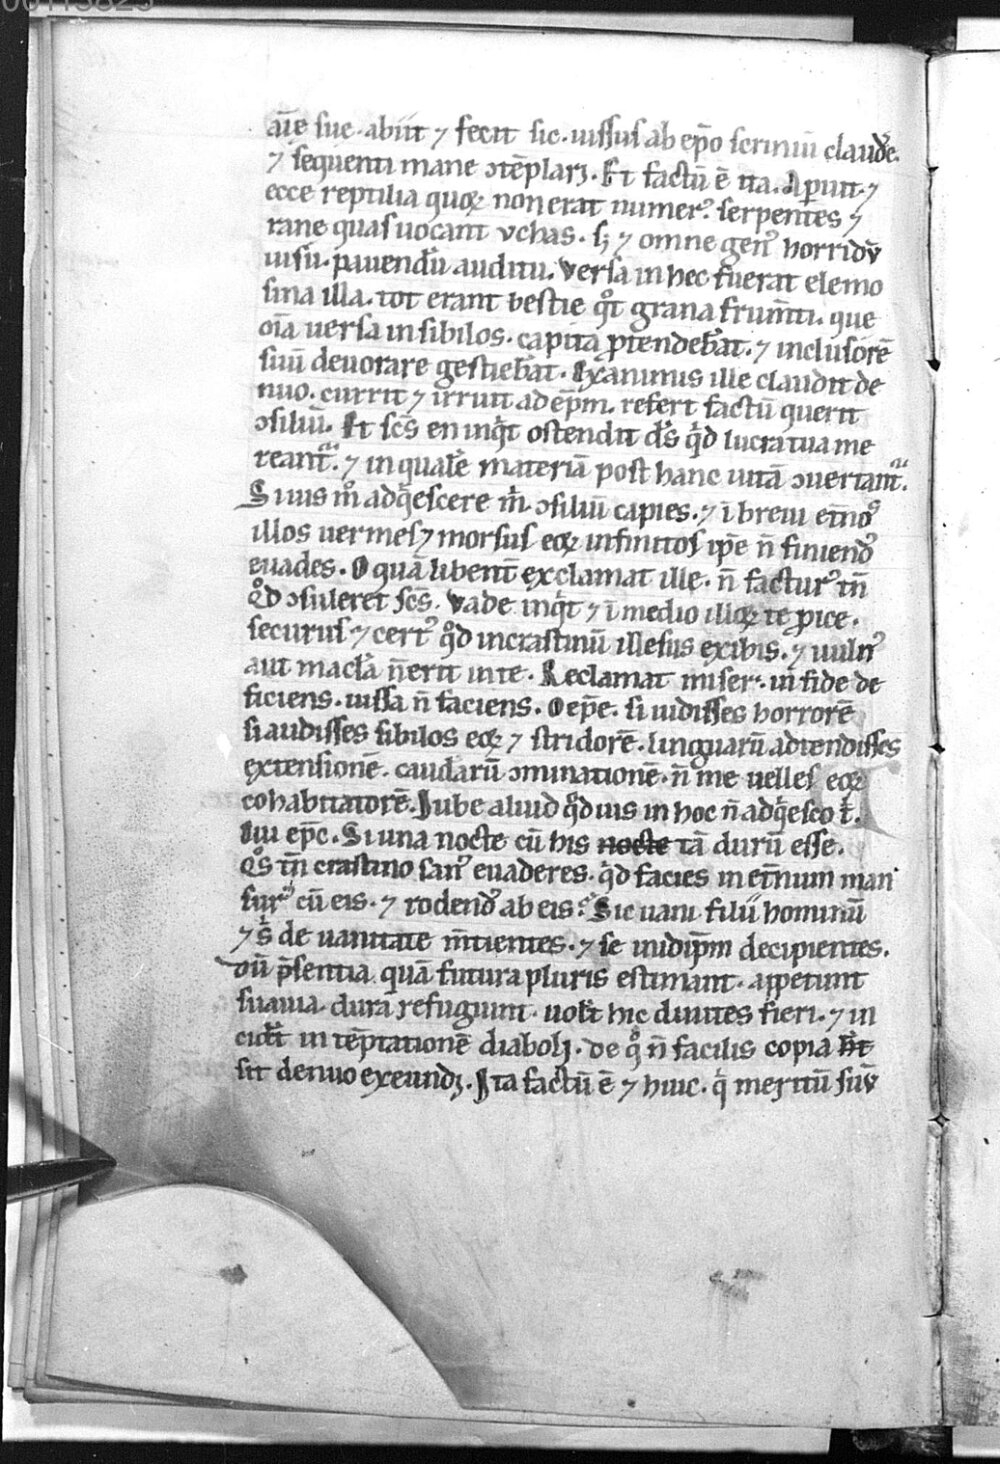 aīe sue. abiit ⁊ fecit sic. iussus ab ep̄o scriniū claud̓e.
⁊ sequenti mane ↄtēplarꝫ. Et factū ē ita. Aperuit. ⁊
ecce reptilia quoꝝ non erat numer᷒. serpentes ⁊
rane quas uocant vchas. sꝫ ⁊ omne gen᷒ horridū
uisu. pauendū auditu. Versa in hec fuerat elemo
sina illa. tot erant bestie qͦt grana frum̄ti. que
oīa uersa in sibilos. capita ꝓtendebāt. ⁊ inclusorē
suū deuorare gestiebāt. Exanimis ille claudit de
nuo. currit ⁊ irruit ad ep̄m. refert factū querit
ↄsiliū. At sc̄s en inqͥt ostendit d̄s qͥd lucra tua me
reant᷑. ⁊ in qualē materiā post hanc uitā ↄuertant᷑.
Si uis m̊ adqͥescere m̄. ↄsiliū capies. ⁊ ī breui et̄no᷒
illos uermes ⁊ morsus eoꝝ infinitos ip̄e n̄ finiend᷒
euades. O quā libent̄ exclamat ille. n̄ factur᷒ tn̄
qͦd ↄsuleret sc̄s. Vade inqͥt ⁊ ī medio illoꝝ te ꝓice.
securus ⁊ cert᷒ qͦd in crastinū illesus exibis. ⁊ uuln᷒
aut macla n̄ erit in te. Reclamat miser. in fide de
ficiens. iussa n̄ faciens. O ep̄e. si uidisses horrorē
si audisses sibilos eoꝝ ⁊ stridorē. linguarū adtendisses
extensionē. caudarū ↄminationē. n̄ me uelles eoꝝ
cohabitatorē. Iube aliud qͦd uis in hoc n̄ adqͥesco t̄.
Cui ep̄c. Si una nocte cū his nocte tā durū esse.
qͦs tn̄ crastino san᷒ euaderes. qͥd facies in et̄num man
sur᷒ cū eis. ⁊ rodend᷒ ab eis? Sic uani filii hominū
⁊ s̄ de uanitate m̄tientes. ⁊ se inuidip̄m decipientes.
dū p̄sentia quā futura pluris estimant. appetunt
suauia. dura refugiunt. uolt̄ hic diuites fieri. ⁊ in
cidt̄ in tēptationē diabolj. de qͦ n̄ facilis copia
sit denuo exeundꝫ. Ita factū ē ⁊ huic. qͥ meritū suū